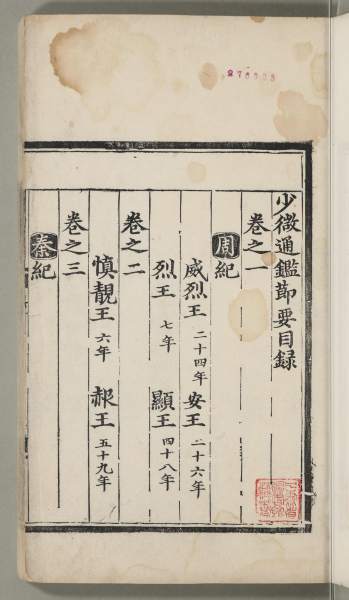 少微通鑑節要目録
卷之一
周紀
威烈王 二十四年 安王 二十六年
烈王 七年 顯王 四十八年
卷之二
慎靚王 六年 赧王 五十九年
卷之三
秦紀